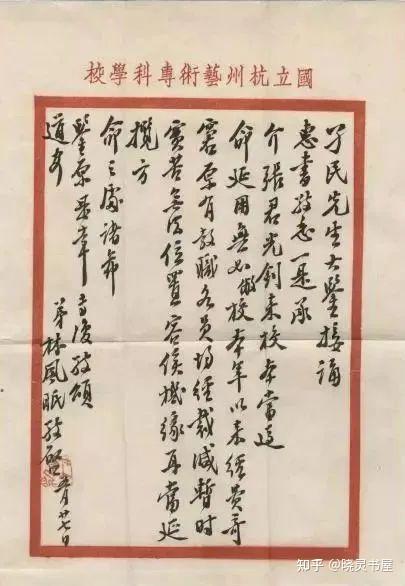 國立杭州藝術專科學校
孑民先生大鑒接誦
惠書敬悉一是承
介張君光釗來校本當遵
命延用無如敝校本年以來經費奇
窘原有教職各員均經裁減暫時
實苦無法位置容俟機緣再當延
攬方
命之處諸希
鑒原是幸專復敬頌
道安
弟林風眠敬啓
月廿七日
知乎 @晓灵书屋